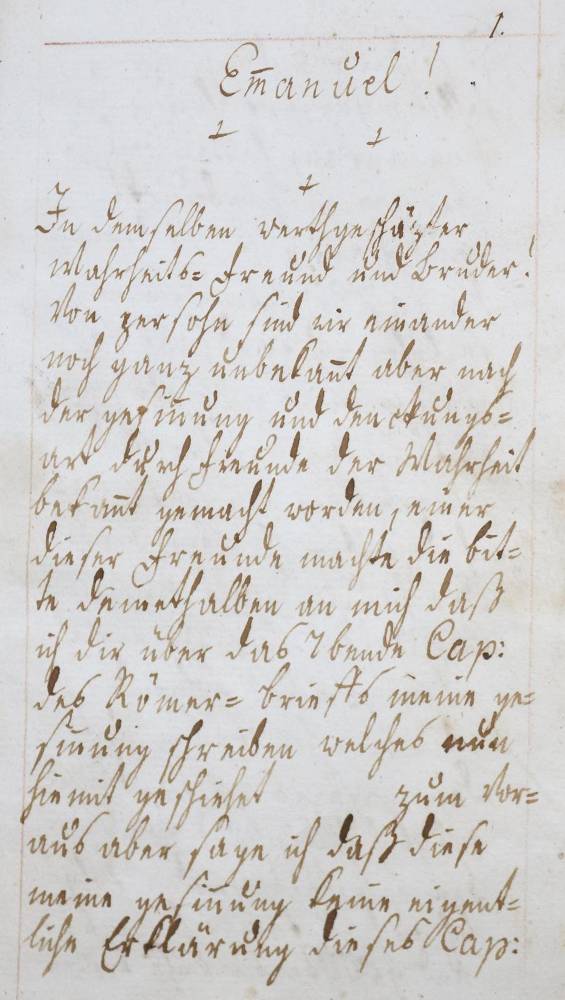 1.
Em̅anuel!
In demselben werthgeschäzter
Wahrheits= Freund und Bruder!
Von persohn sind wir einander
noch ganz unbekan̅t aber nach
der gesin̅ung und denckungs=
art durch Freunde der Wahrheit
bekan̅t gemacht worden, einer
dieser Freunde machte die bit=
te deinethalben an mich daß
ich dir über das 7bende Cap:
des Römer= brieffs meine ge=
sin̅ung schreiben welches nun
hiemit geschiehet zum Vor=
aus aber sage ich daß diese
meine gesin̅ung keine eigent=
liche Erklärung dieses Cap: